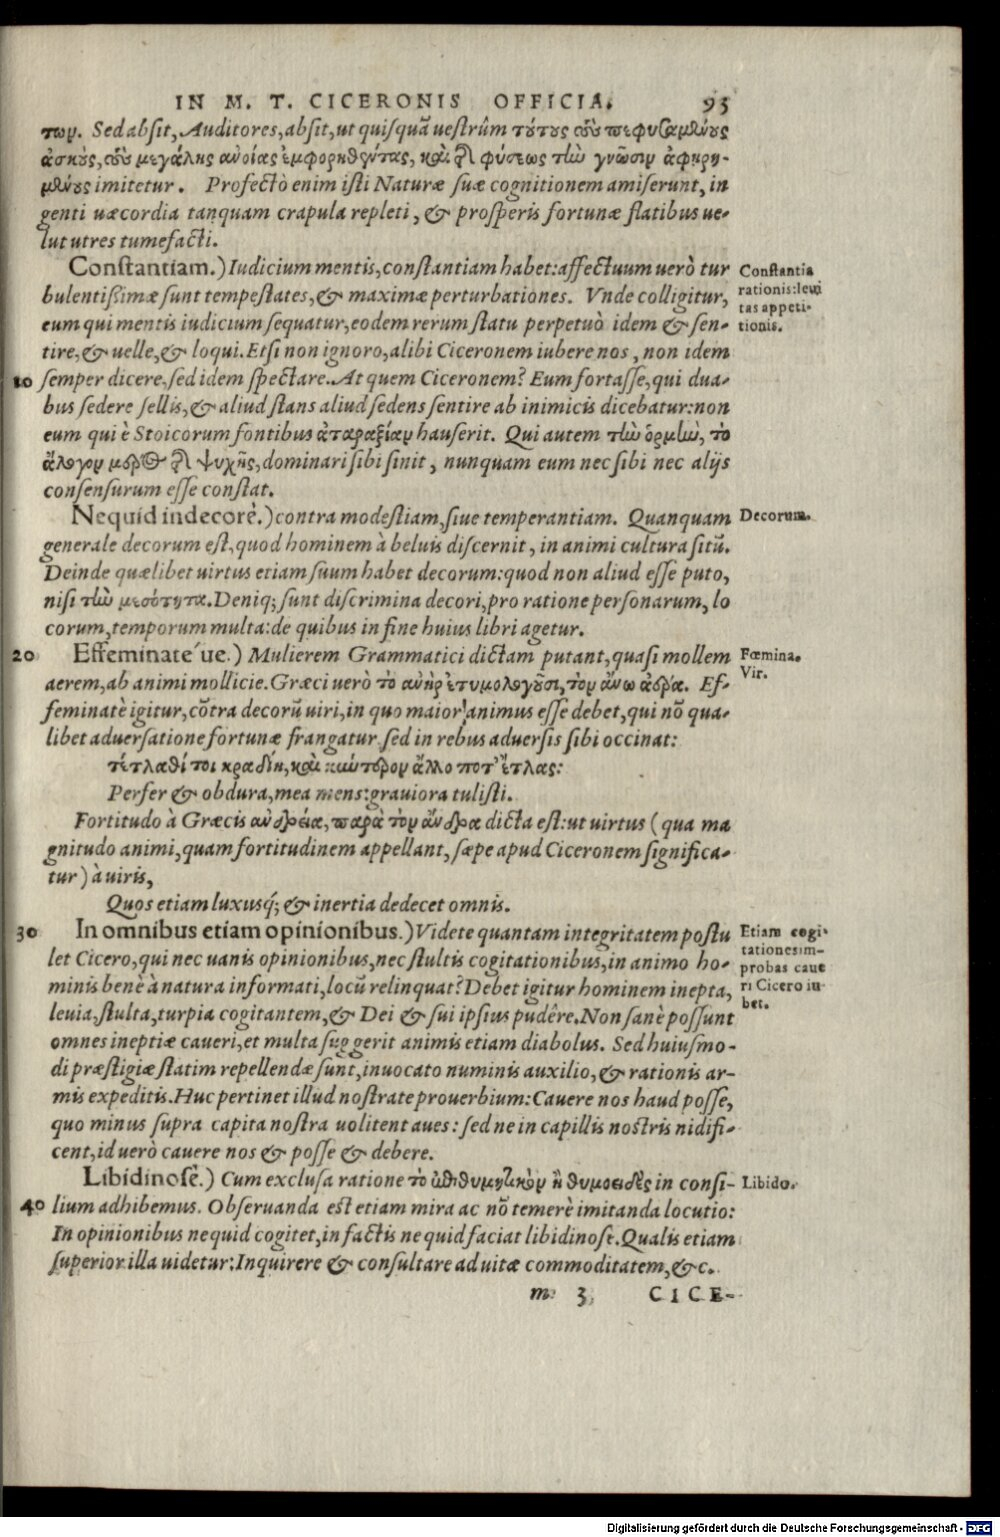 IN M. T. CICERONIS OFFICIA. 93
των. Sed absit, Auditores, absit, ut quisquã uestrûm τούτους τοὺς πεφυσαμένους
ἀσκοὺς, τοὺς μεγάλης ἀνοίας ἐμφορηθέντας, καὶ τῆς φύσεως τὴν γνῶσιν ἀφῃρη-
μένους imitetur. Profectò enim isti Naturæ suæ cognitionem amiserunt, in
genti uæcordia tanquam crapula repleti, & prosperis fortunæ flatibus ue-
lut utres tumefacti.
Constantiam.) Iudicium mentis, constantiam habet: affectuum uerò tur
Constantia
bulentißimæ sunt tempestates, & maximæ perturbationes. Vnde colligitur,
rationis: leui
tas appeti-
eum qui mentis iudicium sequatur, eodem rerum statu perpetuò idem & sen-
tionis.
tire, & uelle, & loqui. Etsi non ignoro, alibi Ciceronem iubere nos, non idem
10 semper dicere, sed idem spectare. At quem Ciceronem? Eum fortasse, qui dua-
bus sedere sellis, & aliud stans aliud sedens sentire ab inimicis dicebatur: non
eum qui è Stoicorum fontibus ἀταραξίαν hauserit. Qui autem τὴν ὁρμὴν, τὸ
ἄλογον μέρος τῆς ψυχῆς, dominari sibi sinit, nunquam eum nec sibi nec alijs
consensurum esse constat.
Nequid indecorè.) contra modestiam, siue temperantiam. Quanquam
Decorum.
generale decorum est, quod hominem à beluis discernit, in animi cultura sitũ.
Deinde quælibet uirtus etiam suum habet decorum: quod non aliud esse puto,
nisi τὴν μεσότητα. Deniq; sunt discrimina decori, pro ratione personarum, lo
corum, temporum multa: de quibus in fine huius libri agetur.
20 Effeminate´ue.) Mulierem Grammatici dictam putant, quasi mollem
Fœmina.
aerem, ab animi mollicie. Græci uerò τὸ ἀνὴρ ἐτυμολογοῦσι, τὸν ἄνω ἀέρα. Ef-
Vir.
feminatè igitur, cõtra decorũ uiri, in quo maior animus esse debet, qui nõ qua-
libet aduersatione fortunæ frangatur sed in rebus aduersis sibi occinat:
τέτλαθί τοι κραδίη, καὶ κύντερον ἄλλο ποτ' ἔτλας:
Perfer & obdura, mea mens: grauiora tulisti.
Fortitudo à Græcis ἀνδρεία, παρὰ τὸν ἄνδρα dicta est: ut uirtus (qua ma
gnitudo animi, quam fortitudinem appellant, sæpe apud Ciceronem significa-
tur) à uiris,
Quos etiam luxusq́; & inertia dedecet omnis.
30 In omnibus etiam opinionibus.) Videte quantam integritatem postu
Etiam cogi-
let Cicero, qui nec uanis opinionibus, nec stultis cogitationibus, in animo ho-
tationes im-
probas caue
minis benè à natura informati, locũ relinquat? Debet igitur hominem inepta,
ri Cicero iu-
bet.
leuia, stulta, turpia cogitantem, & Dei & sui ipsius pudêre. Non sanè possunt
omnes ineptiæ caueri, et multa suggerit animis etiam diabolus. Sed huiusmo-
di præstigiæ statim repellendæ sunt, inuocato numinis auxilio, & rationis ar-
mis expeditis. Huc pertinet illud nostrate prouerbium: Cauere nos haud posse,
quo minus supra capita nostra uolitent aues: sed ne in capillis nostris nidifi-
cent, id uerò cauere nos & posse & debere.
Libidinosè.) Cum exclusa ratione τὸ ἐπιθυμητικὸν ἢ θυμοειδὲς in consi-
Libido.
40 lium adhibemus. Obseruanda est etiam mira ac nõ temerè imitanda locutio:
In opinionibus nequid cogitet, in factis nequid faciat libidinose. Qualis etiam
superior illa uidetur: Inquirere & consultare ad uitæ commoditatem, &c.
m 3 CICE-
Digitalisierung gefördert durch die Deutsche Forschungsgemeinschaft - DFG